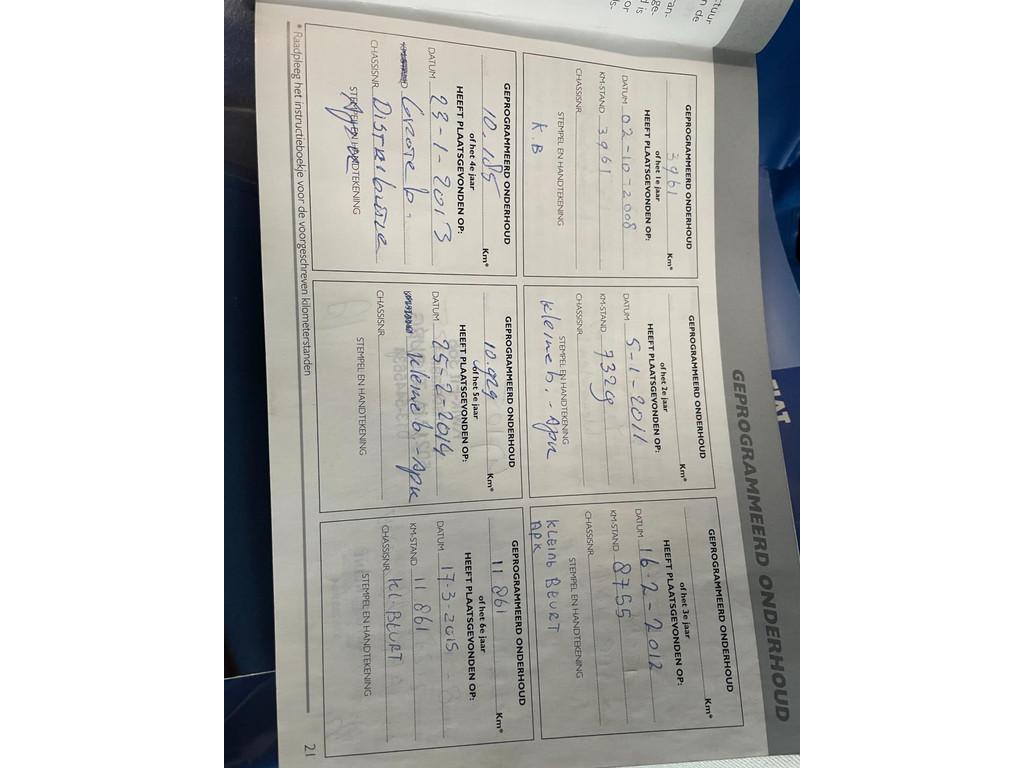 FIAT
GEPROGRAMMEERD ONDERHOUD
GEPROGRAMMEERD ONDERHOUD
3961 Km*
of het 1e jaar
HEEFT PLAATSGEVONDEN OP:
DATUM 02-10-2008
KM-STAND 3961
CHASSISNR.
STEMPEL EN HANDTEKENING
K.B
GEPROGRAMMEERD ONDERHOUD
Km*
of het 2e jaar
HEEFT PLAATSGEVONDEN OP:
DATUM 5-1-2011
KM-STAND 7329
CHASSISNR.
STEMPEL EN HANDTEKENING
kleine b. - Apk
GEPROGRAMMEERD ONDERHOUD
Km*
of het 3e jaar
HEEFT PLAATSGEVONDEN OP:
DATUM 16-2-2012
KM-STAND 8755
CHASSISNR.
STEMPEL EN HANDTEKENING
KLEINE BEURT
APK
GEPROGRAMMEERD ONDERHOUD
10.185 Km*
of het 4e jaar
HEEFT PLAATSGEVONDEN OP:
DATUM 23-1-2013
KM-STAND Grote b.
CHASSISNR. Distributie
STEMPEL EN HANDTEKENING
Apk
GEPROGRAMMEERD ONDERHOUD
10.929 Km*
of het 5e jaar
HEEFT PLAATSGEVONDEN OP:
DATUM 25-2-2014
KM-STAND kleine b - Apk
CHASSISNR.
STEMPEL EN HANDTEKENING
GEPROGRAMMEERD ONDERHOUD
11 861 Km*
of het 6e jaar
HEEFT PLAATSGEVONDEN OP:
DATUM 17-3-2015
KM-STAND 11 861
CHASSISNR. KL-BEURT
STEMPEL EN HANDTEKENING
* Raadpleeg het instructieboekje voor de voorgeschreven kilometerstanden
21